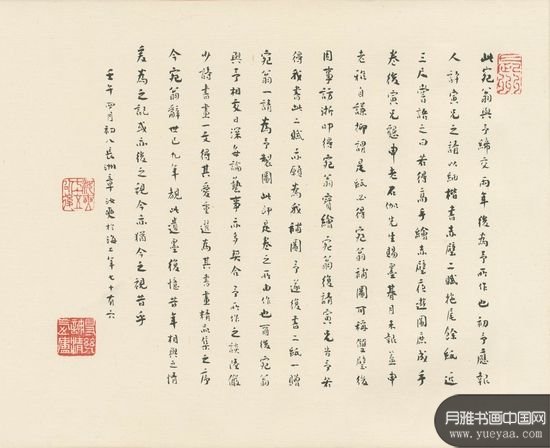 此宛翁與予締交兩年後為予所作也初予應報
人許寅光之請以納楷書赤壁二賦拖尾餘紙近
三尺嘗語之曰若得高手繪赤壁夜遊圖庶成手
卷後寅光懇申老石伽先生賜墨暮月未報蓋申
老雅自謙抑謂是紙必得宛翁補圖可稱雙璧後
因事訪浙叩得宛翁寶繪宛翁後請寅光告予若
得我書此二賦亦願為我補圖予遂復書二紙一贈
宛翁一請為予製圖此即是卷之所由作也爾後宛翁
與予相交日深每論藝事亦多契合予所作之談陸儼
少詩書畫一文得其愛重選為其書畫精品集之序
今宛翁辭世已九年覩此遺墨復憶昔年相與之情
爰為之記或亦後之視今亦猶今之視昔乎
壬午四月初八長洲章汝奭於海上年七十有六
月雅书画中国网
www.yueyaa.com